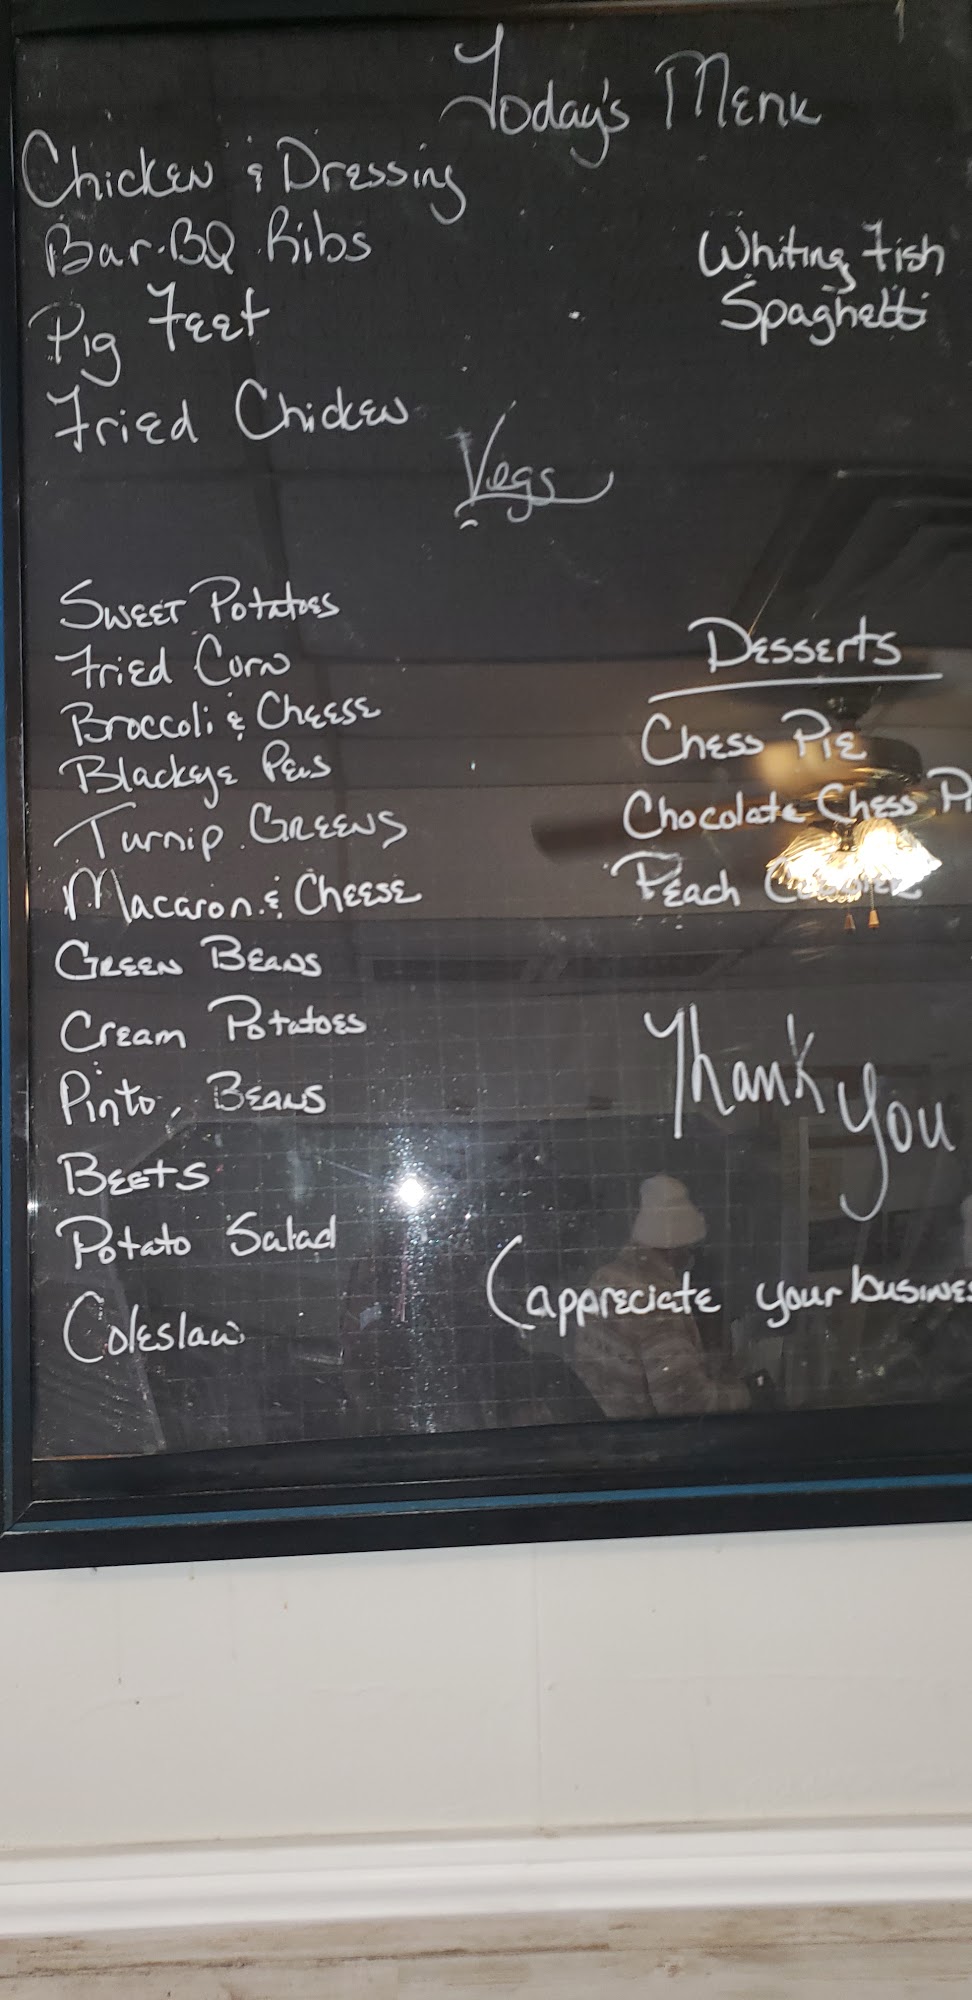 Today's Menu
Chicken & Dressing
Bar-BQ Ribs
Pig Feet
Fried Chicken
Whiting Fish
Spaghetti
Vegs
Sweet Potatoes
Fried Corn
Broccoli & Cheese
Blackeye Peas
Turnip Greens
Macaroni & Cheese
Green Beans
Cream Potatoes
Pinto, Beans
Beets
Potato Salad
Coleslaw
Desserts
Chess Pie
Chocolate Chess Pi
Peach
Thank you
(appreciate your busines